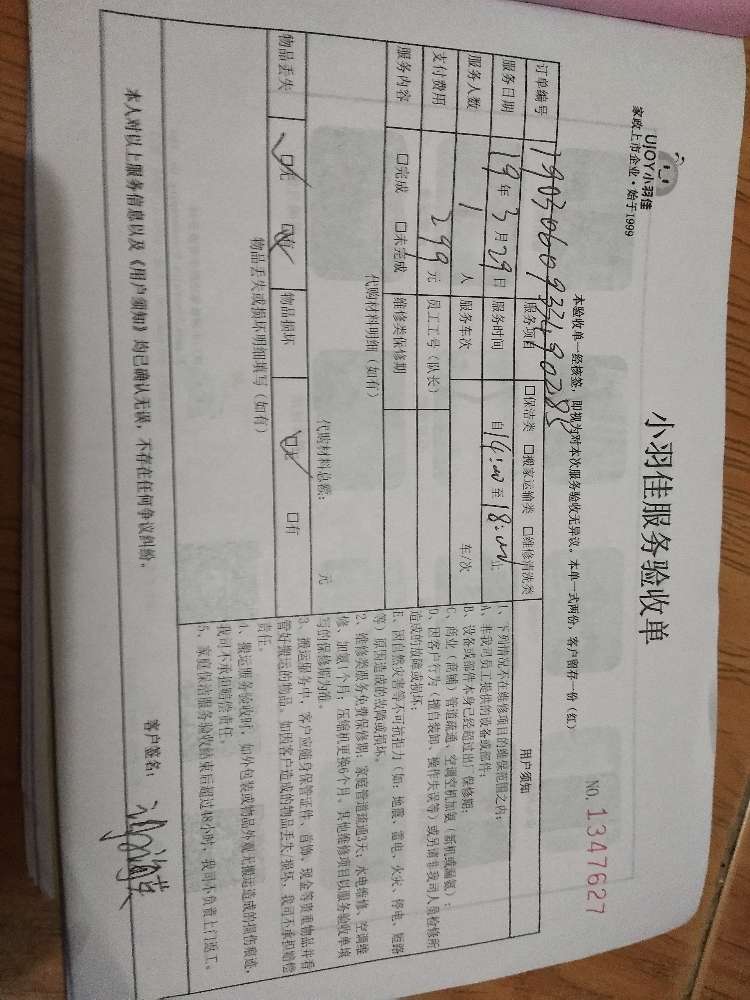 UJOY小羽佳
家政上市企业·始于1999
小羽佳服务验收单
NO. 1347627
本验收单一经核签，即视为对本次服务验收无异议。本单一式两份，客户留存一份（红）
订单编号
服务项目 □保洁类 □搬家运输类 □维修清洗类
服务日期 19年3月29日 服务时间 自14:00至18:00止
服务人数 1人 服务车次 车/次
支付费用 299元 员工工号（队长）
服务内容 □完成 □未完成 维修类保修期
代购材料明细（如有）
代购材料总额： 元
物品丢失 □无 □有 物品损坏 □无 □有
物品丢失或损坏明细填写（如有）
用户须知
1、下列情况不在维修项目的维保范围之内：
A、非我司员工提供的设备或部件；
B、设备或部件本身已经超过出厂保修期；
C、商业（商铺）管道疏通、空调空机加氨（新机或漏氨）；
D、因客户行为（擅自装卸、操作失误等）或另请非我司人员检修所
造成的故障或损坏；
E、因自然灾害等不可抗拒力（如：地震、雷电、火灾、停电、短路
等）原因造成的故障或损坏。
2、维修类服务免费保修期：家庭管道疏通3天；水电维修、空调维
修、加氨1个月；压缩机更换6个月。其他维修项目以服务验收单填
写的保修期为准。
3、搬运服务中，客户应随身保管证件、首饰、现金等贵重物品并看
管好搬运的物品。如因客户造成的物品丢失/损坏，我司不承担赔偿
责任。
4、搬运服务验收时，如外包装或物品外观无搬运造成的损伤痕迹，
我司不承担赔偿责任。
5、家庭保洁服务验收结束后超过48小时，我司不负责上门返工。
本人对以上服务信息以及《用户须知》均已确认无误，不存在任何争议纠纷。
客户签名：